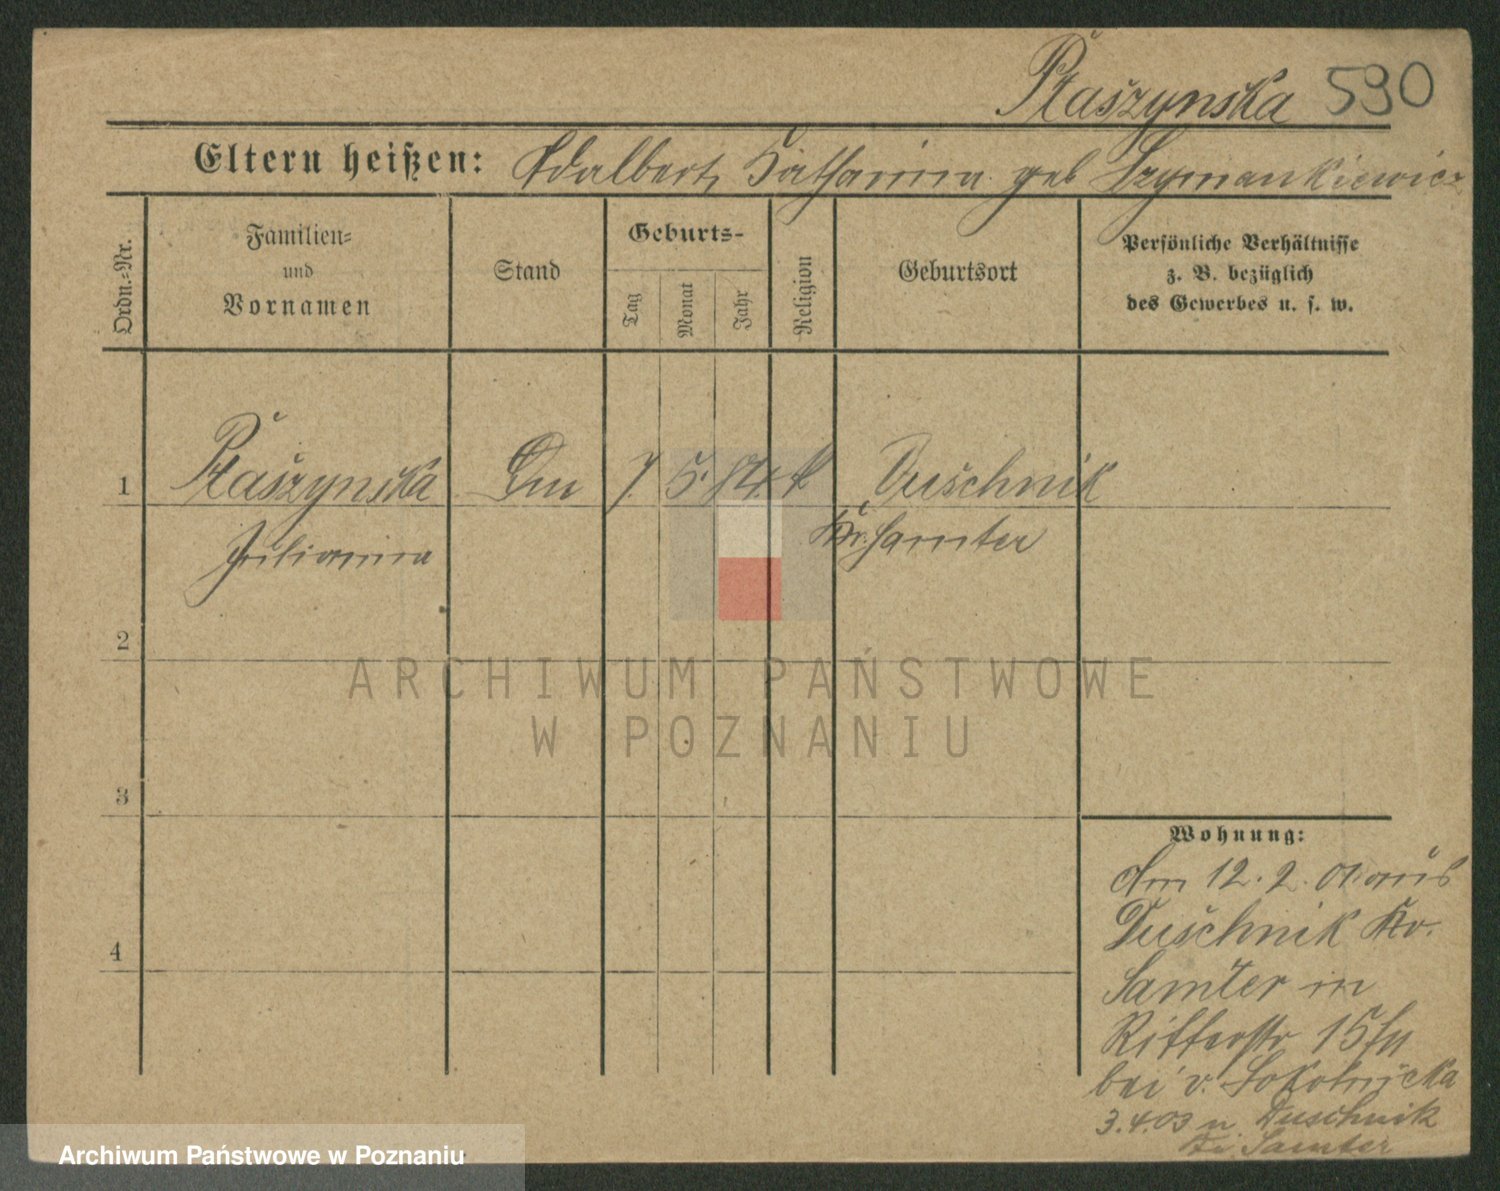 Ptaszynska 590
Eltern heißen: Adalbert, Katharina geb Szymankiewicz
Ordn.-Nr.
Familien-
und
Vornamen
Stand
Geburts-
Tag
Monat
Jahr
Religion
Geburtsort
Persönliche Verhältnisse
z. B. bezüglich
des Gewerbes u. s. w.
1 Ptaszynska 7. 5. 84 k Duschnik
Julianna Kr. Samter
2
3
4
Wohnung:
Am 12. 2. 01. aus
Duschnik Kr.
Samter in
Ritterstr 15
bei v. Sokolnicka
3.4.03 n Duschnik
Samter
ARCHIWUM PAŃSTWOWE
W POZNANIU
Archiwum Państwowe w Poznaniu